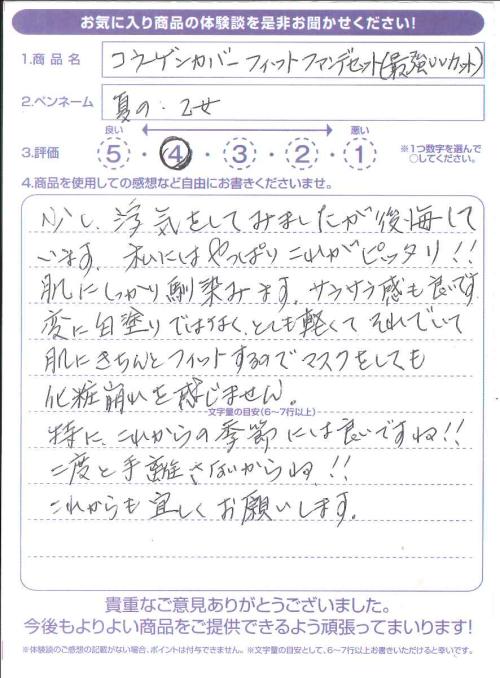 お気に入り商品の体験談を是非お聞かせください!
1.商品名 コラーゲンカバーフィットファンデセット(最強UVカット)
2.ペンネーム 夏の・乙女
良い 悪い
3.評価 5・4・3・2・1 ※1つ数字を選んで○してください。
4.商品を使用しての感想など自由にお書きくださいませ。
少し、浮気をしてみましたが後悔して
います。私にはやっぱりこれがピッタリ!!
肌にしっかり馴染みます。サラサラ感も良いです
変に白塗りではなく、とても軽くてそれでいて
肌にきちんとフィットするのでマスクをしても
化粧崩れを感じません。
文字量の目安(6~7行以上)
特に、これからの季節には良いですね!!
二度と手離さないからね!!
これからも宜しくお願いします。
貴重なご意見ありがとうございました。
今後もよりよい商品をご提供できるよう頑張ってまいります!
※体験談のご感想の記載がない場合、ポイントは付与できません。※文字量の目安として、6~7行以上お書きいただけると幸いです。